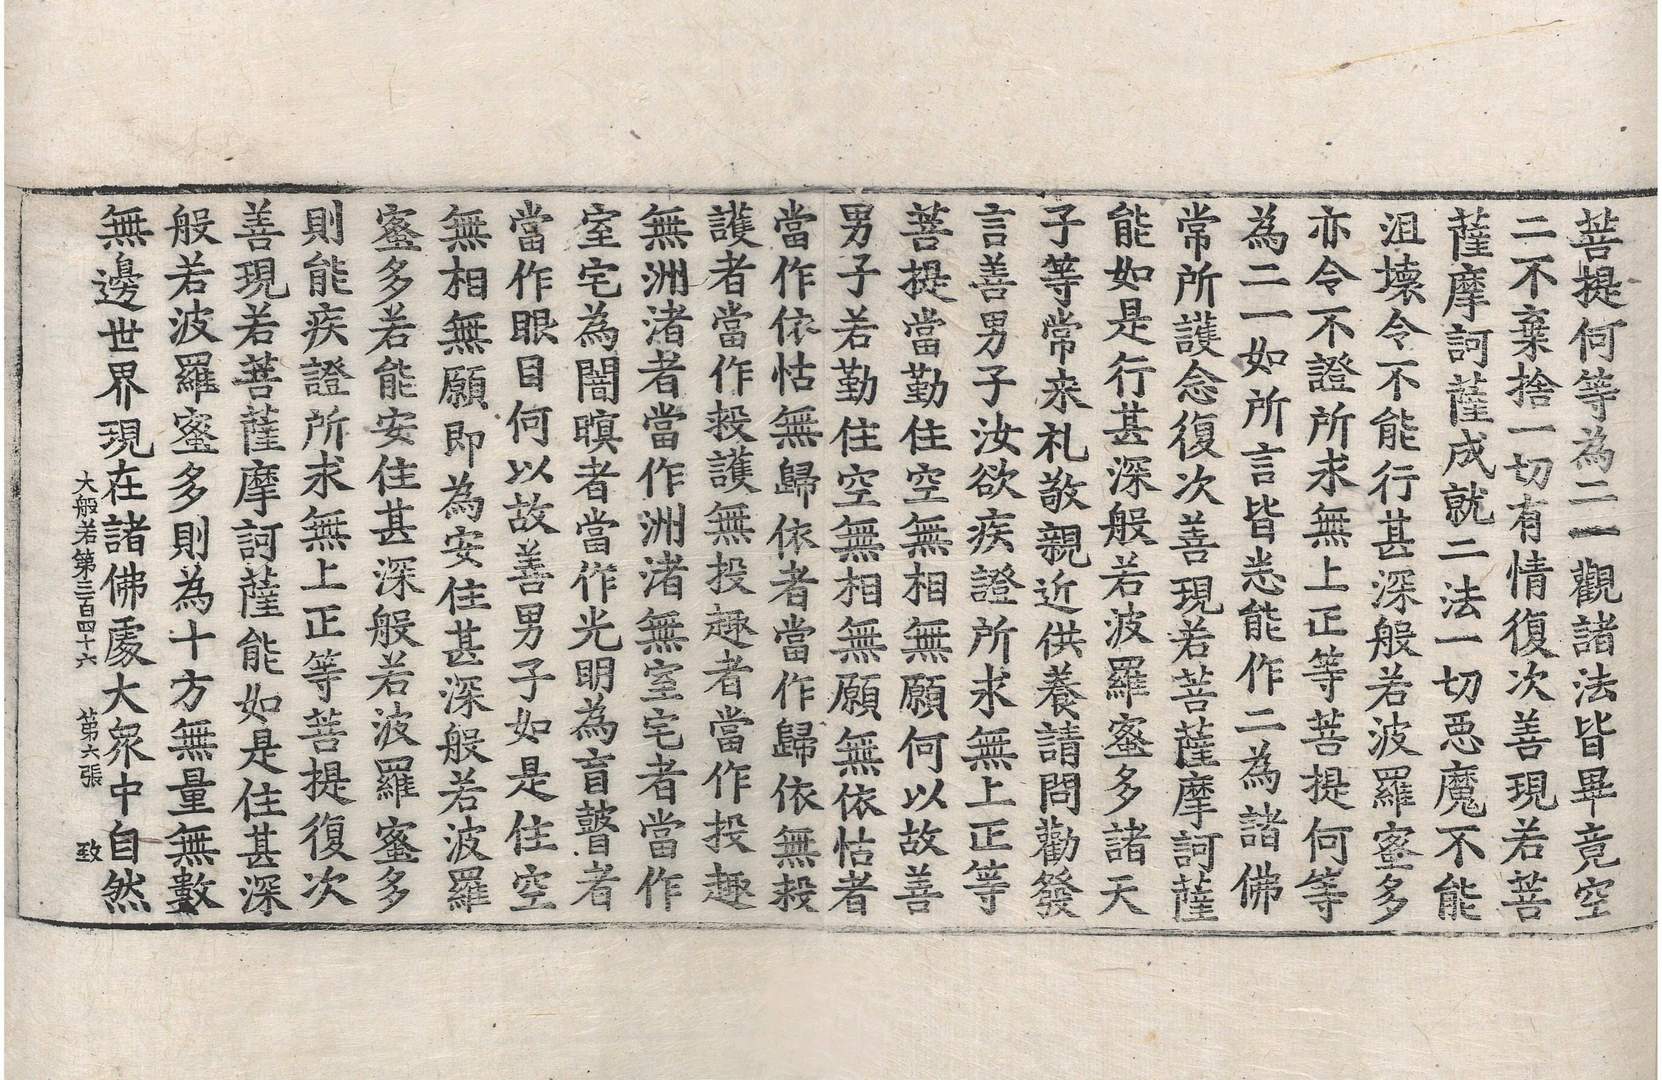 菩提何等為二一觀諸法皆畢竟空
二不棄捨一切有情復次善現若菩
薩摩訶薩成就二法一切惡魔不能
沮壞令不能行甚深般若波羅蜜多
亦令不證所求無上正等菩提何等
為二一如所言皆悉能作二為諸佛
常所護念復次善現若菩薩摩訶薩
能如是行甚深般若波羅蜜多諸天
子等常来礼敬親近供養請問勸發
言善男子汝欲疾證所求無上正等
菩提當勤住空無相無願何以故善
男子若勤住空無相無願無依怙者
當作依怙無歸依者當作歸依無投
護者當作投護無投趣者當作投趣
無洲渚者當作洲渚無室宅者當作
室宅為闇暝者當作光明為盲瞽者
當作眼目何以故善男子如是住空
無相無願即為安住甚深般若波羅
蜜多若能安住甚深般若波羅蜜多
則能疾證所求無上正等菩提復次
善現若菩薩摩訶薩能如是住甚深
般若波羅蜜多則為十方無量無數
無邊世界現在諸佛處大衆中自然
大般若第三百四十六 第六張 致